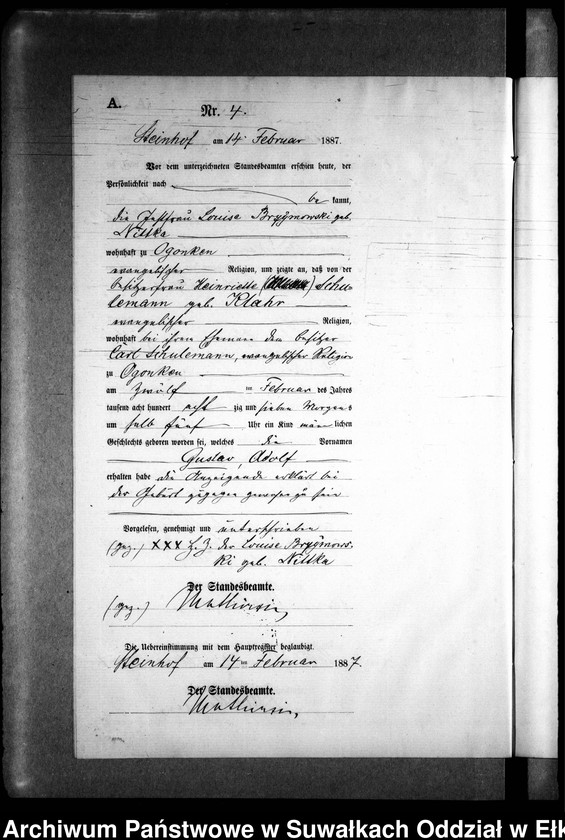 A.
Nr. 4.
Steinhof am 14. Februar 1887.
Vor dem unterzeichneten Standesbeamten erschien heute, der
Persönlichkeit nach
be kannt,
die Louise Brygmowski geb.
Nittka
wohnhaft zu Ogonken
evangelischer Religion, und zeigte an, daß von der
Besitzerfrau Heinriette Schu-
lemann geb. Klahr
evangelischer Religion,
wohnhaft bei ihrem Ehemann dem Besitzer
Carl Schulemann, evangelischer Religion
zu Ogonken
am zwölf ten Februar des Jahres
tausend acht hundert acht zig und sieben Morgens
um halb fünf Uhr ein Kind männ lichen
Geschlechts geboren worden sei, welches die Vornamen
Gustav, Adolf
erhalten habe die Anzeigende erklärt bei
der Geburt zugegen gewesen zu sein
Vorgelesen, genehmigt und unterschrieben
(gez.) XXX H. Z. der Louise Brygmows-
ki geb. Nittka
Der Standesbeamte.
(gez.)
Die Uebereinstimmung mit dem Hauptregister beglaubigt.
Steinhof am 14 ten Februar 1887.
Der Standesbeamte.
Archiwum Państwowe w Suwałkach Oddział w Ełk